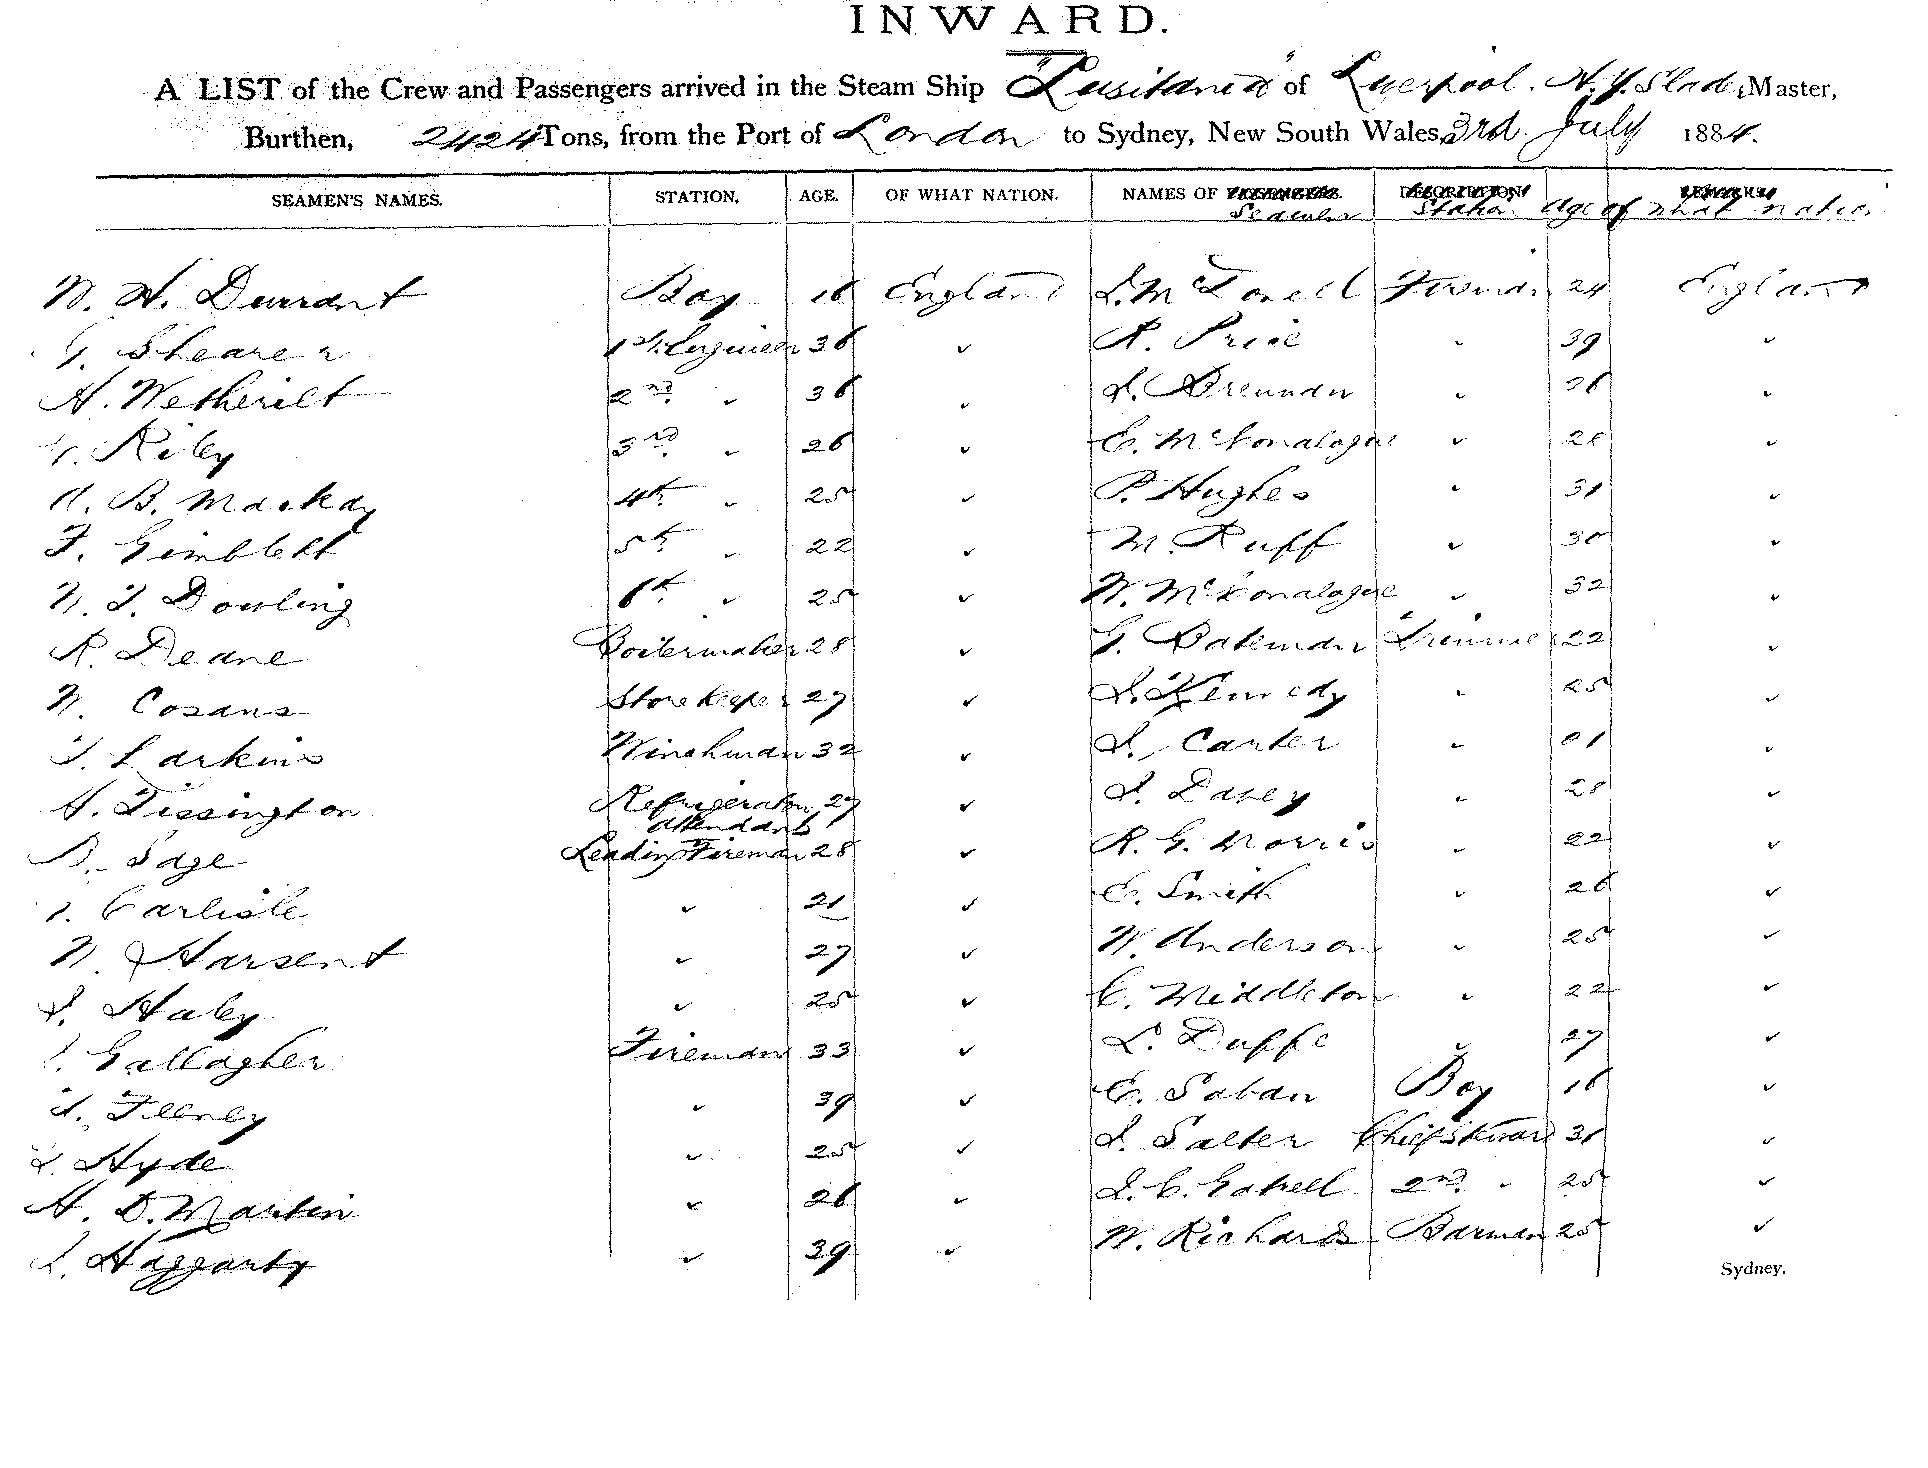 INWARD.
A LIST of the Crew and Passengers arrived in the Steam Ship "Lusitania" of Liverpool. Master,
Burthen, 2424 Tons, from the Port of London to Sydney, New South Wales, 3rd July 1884.
SEAMEN'S NAMES. STATION. AGE. OF WHAT NATION. NAMES OF Station Age of what nation
W. H. Durrant Boy 16 England 24 England
G. Shearer 1st Engineer 36 " R. Price " 39 "
H. Wetherilt 2nd " 36 " Brennan " 26 "
Riley 3rd " 26 " E. McConalogue " "
B. Mackay 4th " 25 " P. Hughes " 31 "
F. Gimblett 5th " 22 " M. Ruff " 30 "
W. J. Dowling 6th " 25 " W. McConalogue " 32 "
R. Deane Boilermaker 28 " G. Bateman Trimmer 22 "
W. Cosans Storekeeper 27 " Kennedy " 25 "
Larkins Winchman 32 " J. Carter " "
H. Tissington Refrigerator attendant 27 " J. Davey " 28 "
Sage Leading Fireman 28 " R. G. Morris " 22 "
Carlisle " 21 " E. Smith " 26 "
W. Harsent " 27 " W. Anderson " 25 "
J. Haley " 25 " C. Middleton " 22 "
Gallagher Fireman 33 " L. Duffe " 27 "
Feeney " 39 " E. Saban Boy 16 "
Hyde " 25 " J. Salter Chief Steward 31 "
H. D. Martin " 26 " J. C. Gatrell 2nd " 25 "
Haggarty " 39 " W. Richards Barman 25 "
Sydney.